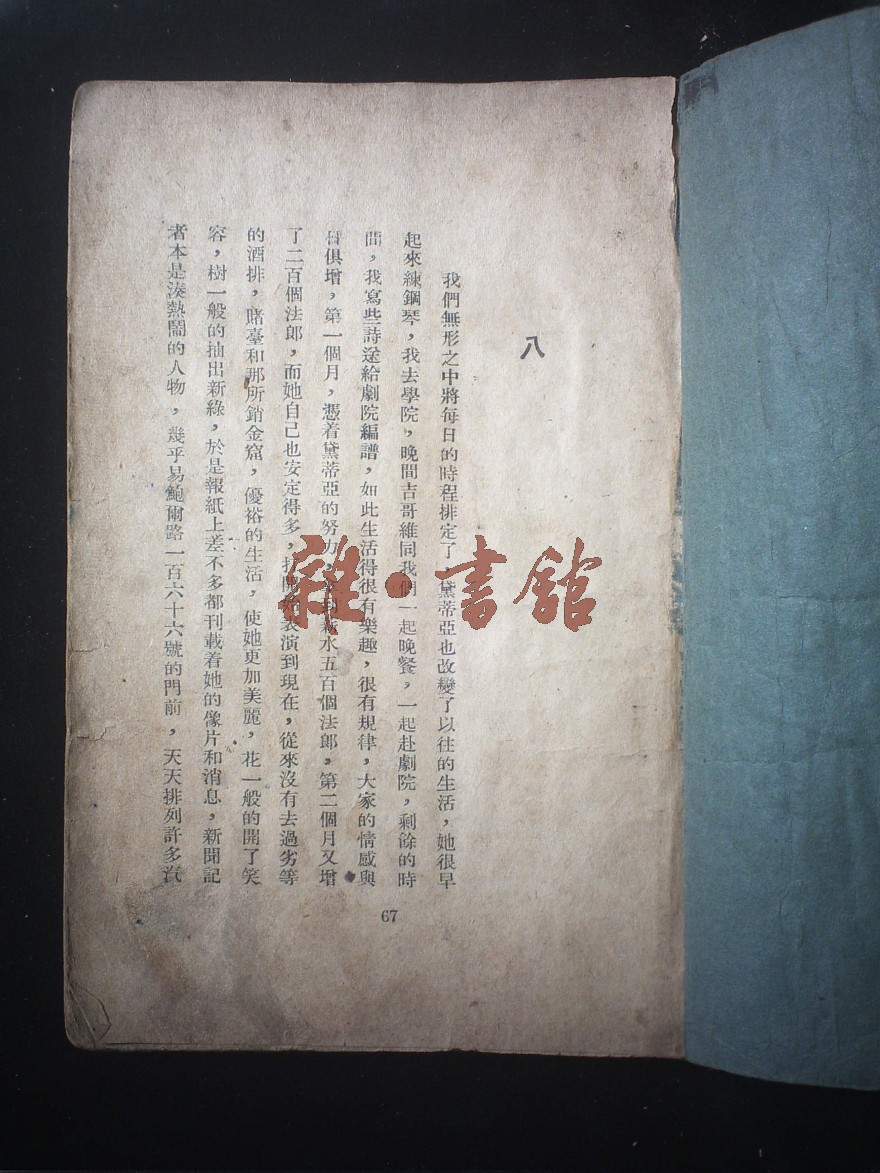 八
我們無形之中將每日的時程排定了，黛蒂亞也改變了以往的生活，她很早
起來練鋼琴，我去學院，晚間吉哥維同我們一起晚餐，一起赴劇院，剩餘的時
間，我寫些詩送給劇院編譜，如此生活得很有樂趣，很有規律，大家的情感與
日俱增，第一個月，憑着黛蒂亞的努力，薪水五百個法郎，第二個月又增
了二百個法郎，而她自己也安定得多，開始表演到現在，從來沒有去過劣等
的酒排，賭臺和那所銷金窟，優裕的生活，使她更加美麗，花一般的開了笑
容，樹一般的抽出新綠，於是報紙上差不多都刊載着她的像片和消息，新聞記
者本是湊熱鬧的人物，幾乎易鮑爾路一百六十六號的門前，天天排列許多汽
67
雜·書館